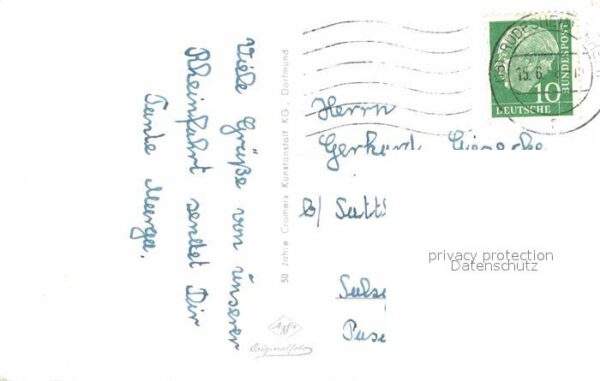 Viele Grüße von unserer
Rheinfahrt sendet Dir
Tante
50 Jahre Cramers Kunstanstalt KG., Dortmund
Originalfoto
RÜDESHEIM
15. 6.
10
DEUTSCHE
BUNDESPOST
Herrn
Gerhard
b/
privacy protection
Datenschutz